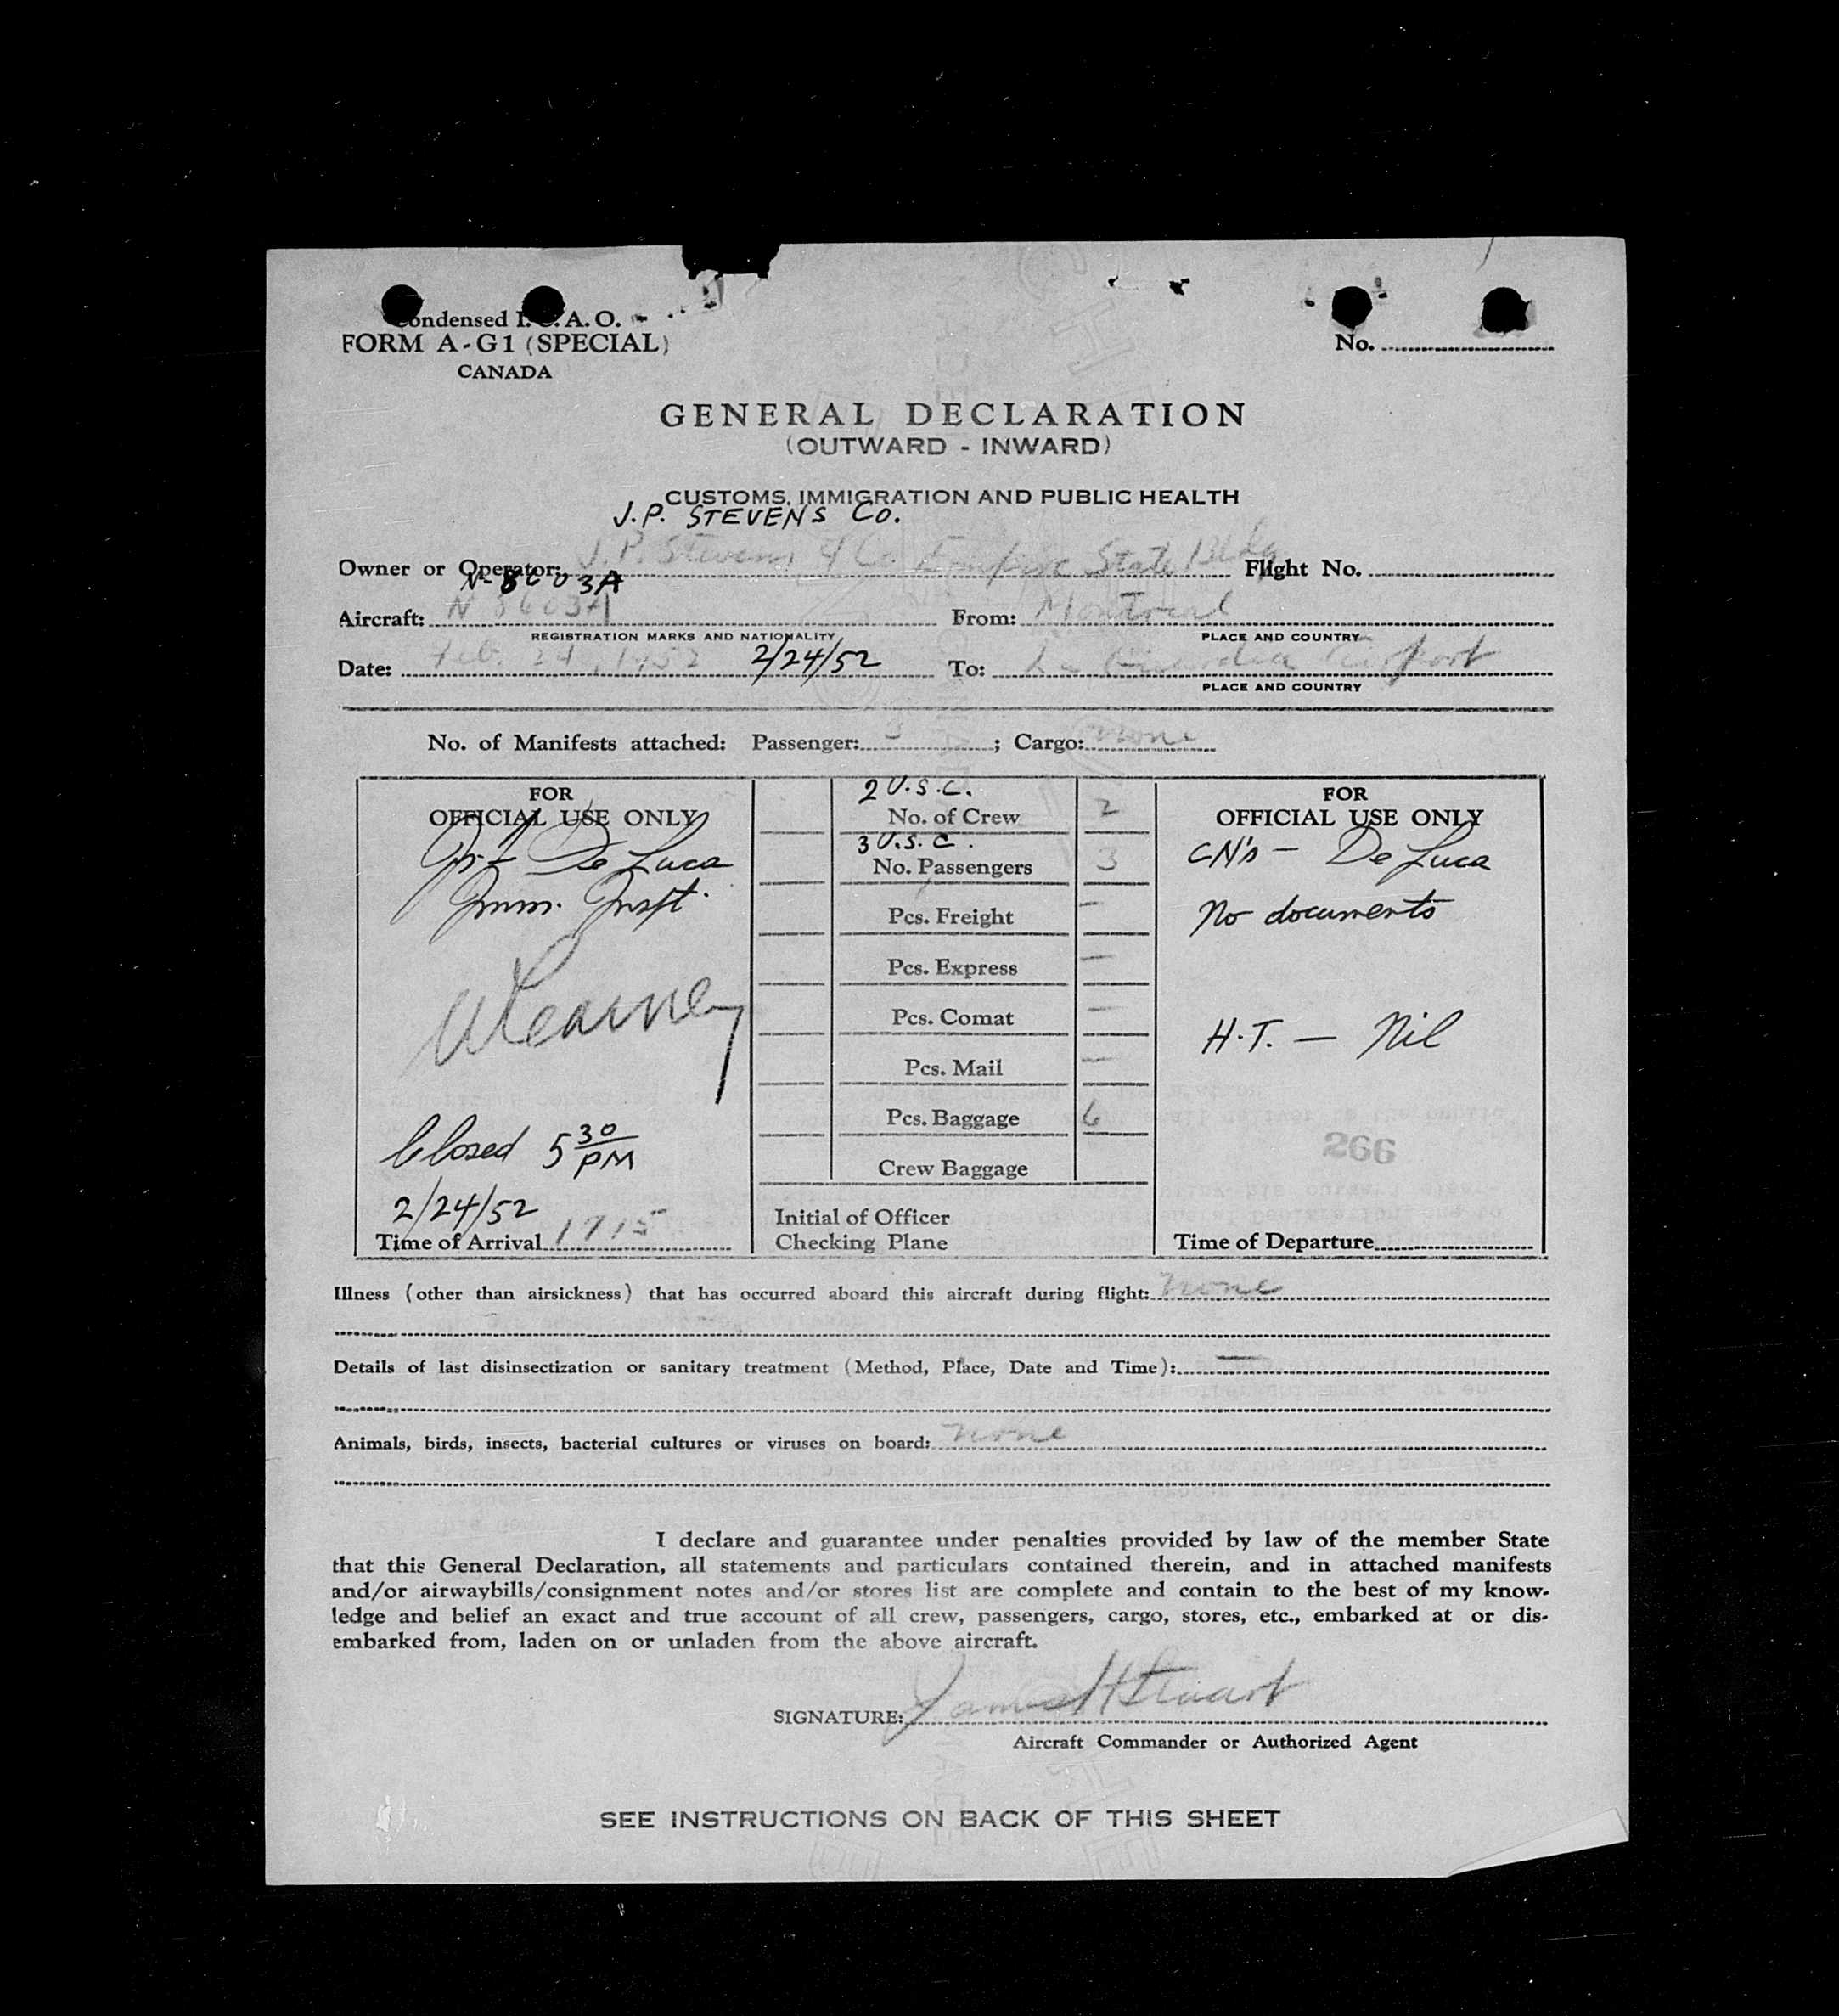 Condensed I.C.A.O.
FORM A-G1 (SPECIAL)
CANADA
No.
GENERAL DECLARATION
(OUTWARD - INWARD)
CUSTOMS, IMMIGRATION AND PUBLIC HEALTH
J.P. STEVENS CO.
Owner or Operator: J.P. Stevens & Co. Empire State Bldg Flight No.
N-8603A
Aircraft: N 8603A From: Montreal
REGISTRATION MARKS AND NATIONALITY PLACE AND COUNTRY
Date: Feb. 24, 1952 2/24/52 To: La Guardia Airport
PLACE AND COUNTRY
No. of Manifests attached: Passenger: 3; Cargo: none
FOR
OFFICIAL USE ONLY
De Luca
Imm. Inspt.
Closed 5 30 PM
2/24/52
Time of Arrival 1715
2 U.S.C.
No. of Crew 2
3 U.S.C.
No. Passengers 3
Pcs. Freight —
Pcs. Express —
Pcs. Comat —
Pcs. Mail —
Pcs. Baggage 6
Crew Baggage
Initial of Officer
Checking Plane
FOR
OFFICIAL USE ONLY
CN's — De Luca
No documents
H.T. — Nil
266
Time of Departure
Illness (other than airsickness) that has occurred aboard this aircraft during flight: none
Details of last disinsectization or sanitary treatment (Method, Place, Date and Time): —
Animals, birds, insects, bacterial cultures or viruses on board: none
I declare and guarantee under penalties provided by law of the member State
that this General Declaration, all statements and particulars contained therein, and in attached manifests
and/or airwaybills/consignment notes and/or stores list are complete and contain to the best of my know-
ledge and belief an exact and true account of all crew, passengers, cargo, stores, etc., embarked at or dis-
embarked from, laden on or unladen from the above aircraft.
SIGNATURE: James H Stuart
Aircraft Commander or Authorized Agent
SEE INSTRUCTIONS ON BACK OF THIS SHEET